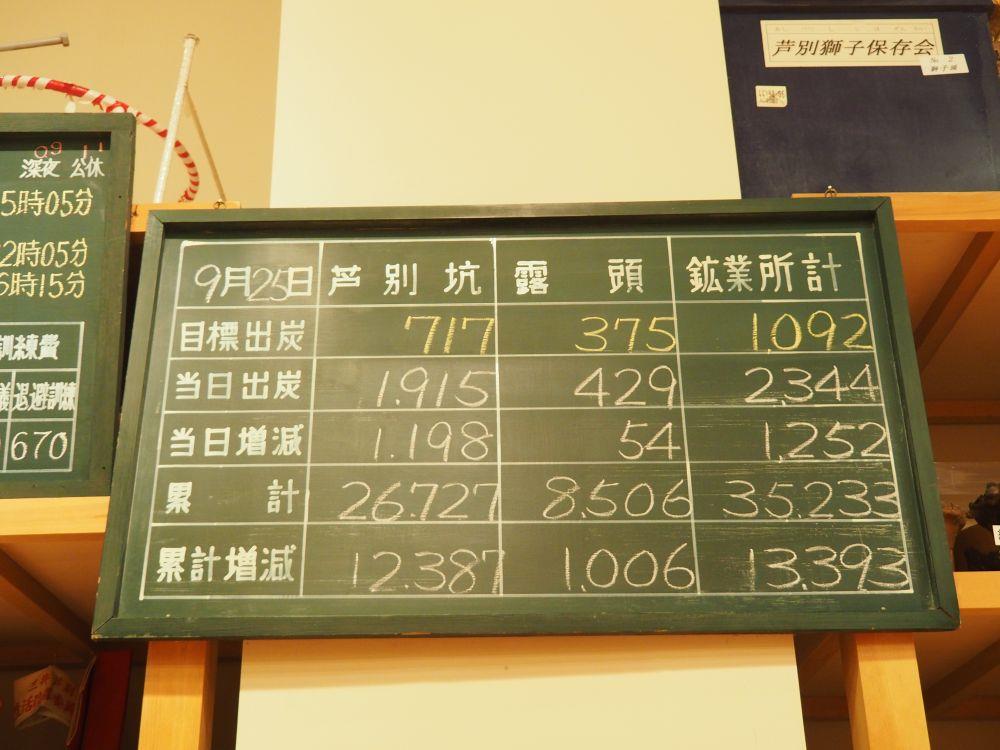 芦別獅子保存会
No. 2
獅子頭
09 11
深夜 公休
5時05分
2時05分
6時15分
訓練費
退避訓練
670
9月25日 芦別坑 露頭 鉱業所計
目標出炭 717 375 1.092
当日出炭 1.915 429 2.344
当日増減 1.198 54 1.252
累計 26.727 8.506 35.233
累計増減 12.387 1.006 13.393